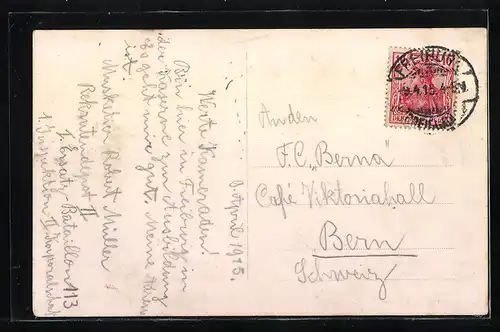 8. April 1915.
Werte Kameraden!
Bin hier in Freiburg in
der Kaserne zur Ausbildung
Es geht mir gut. Meine Adresse
ist:
Musketier Robert Müller
Rekrutendepot II
1. Ersatz-Bataillon 113
1. Inspektion II. Korporalschaft
FREIBURG
An den
F.C. „Berna"
Café Viktoriahall
Bern
Schweiz